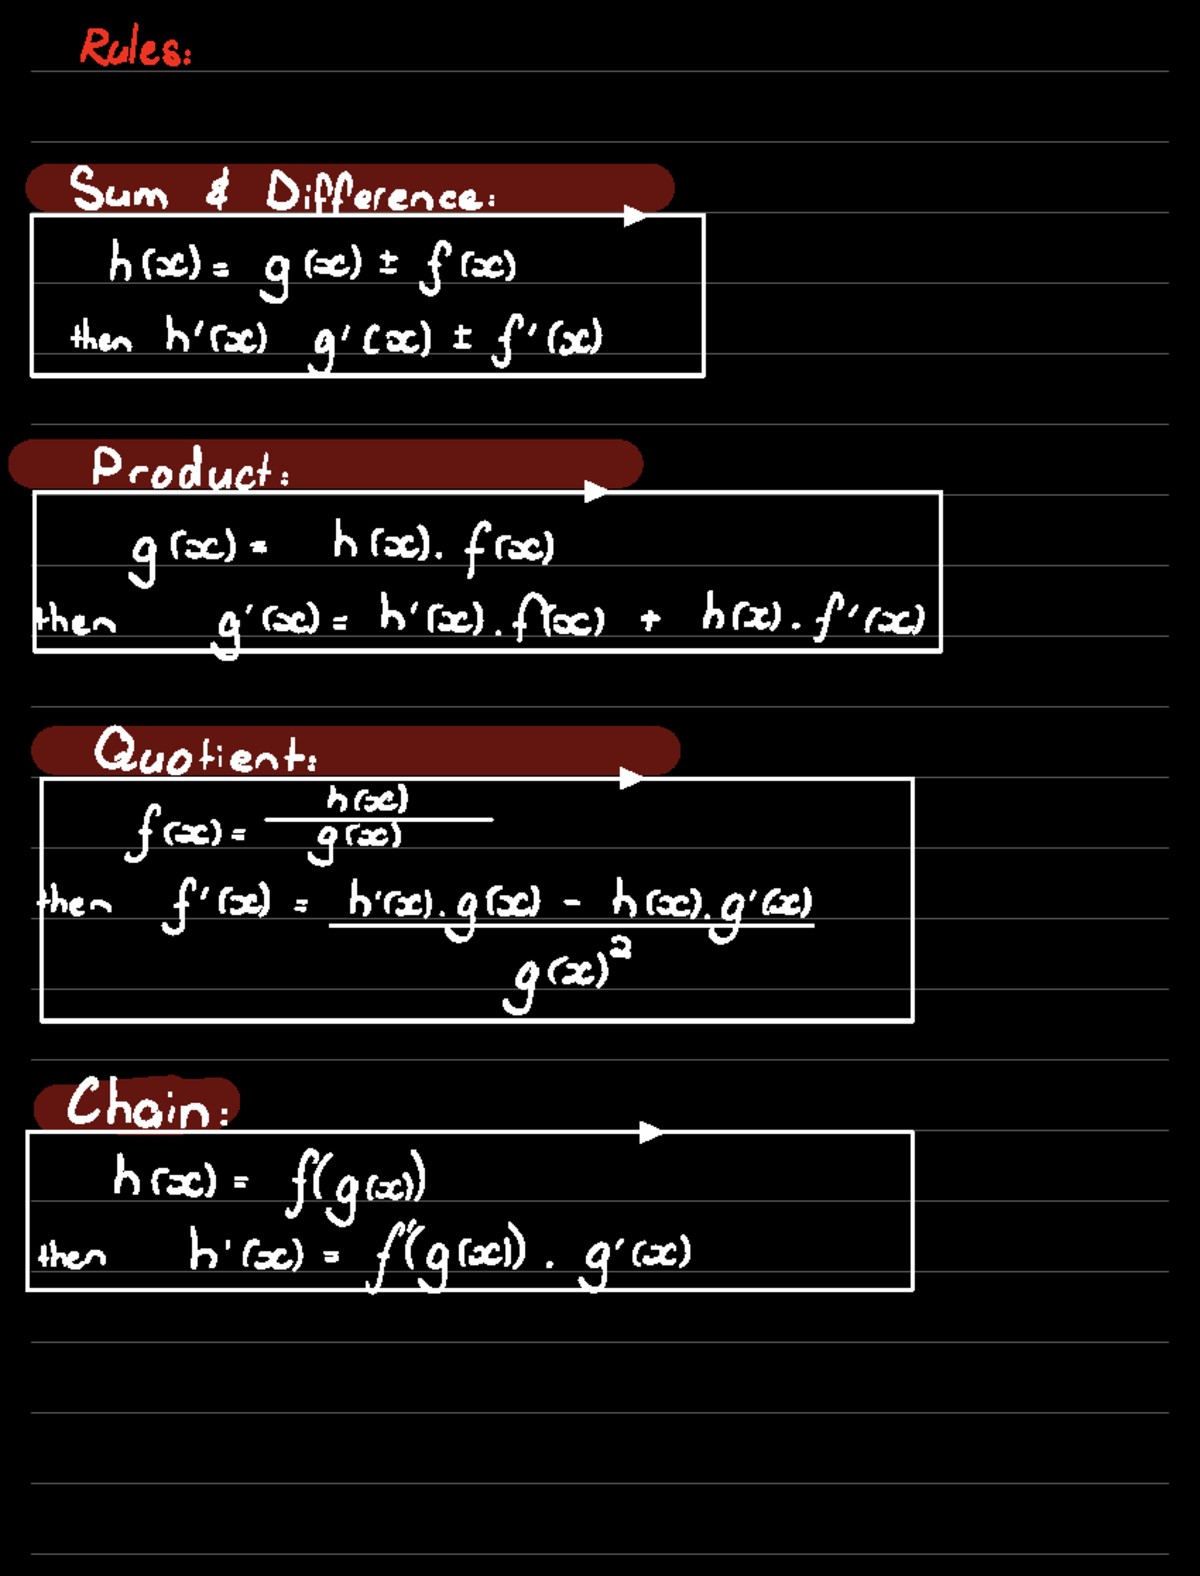 Rules:
Sum & Difference:
h(x) = g(x) ± f(x)
then h'(x) g'(x) ± f'(x)
Product:
g(x) = h(x). f(x)
then g'(x) = h'(x). f(x) + h(x). f'(x)
Quotient:
h(x)
f(x) =
g(x)
then f'(x) = h'(x). g(x) - h(x). g'(x)
g(x)²
Chain:
h(x) = f(g(x))
then h'(x) = f'(g(x)) . g'(x)